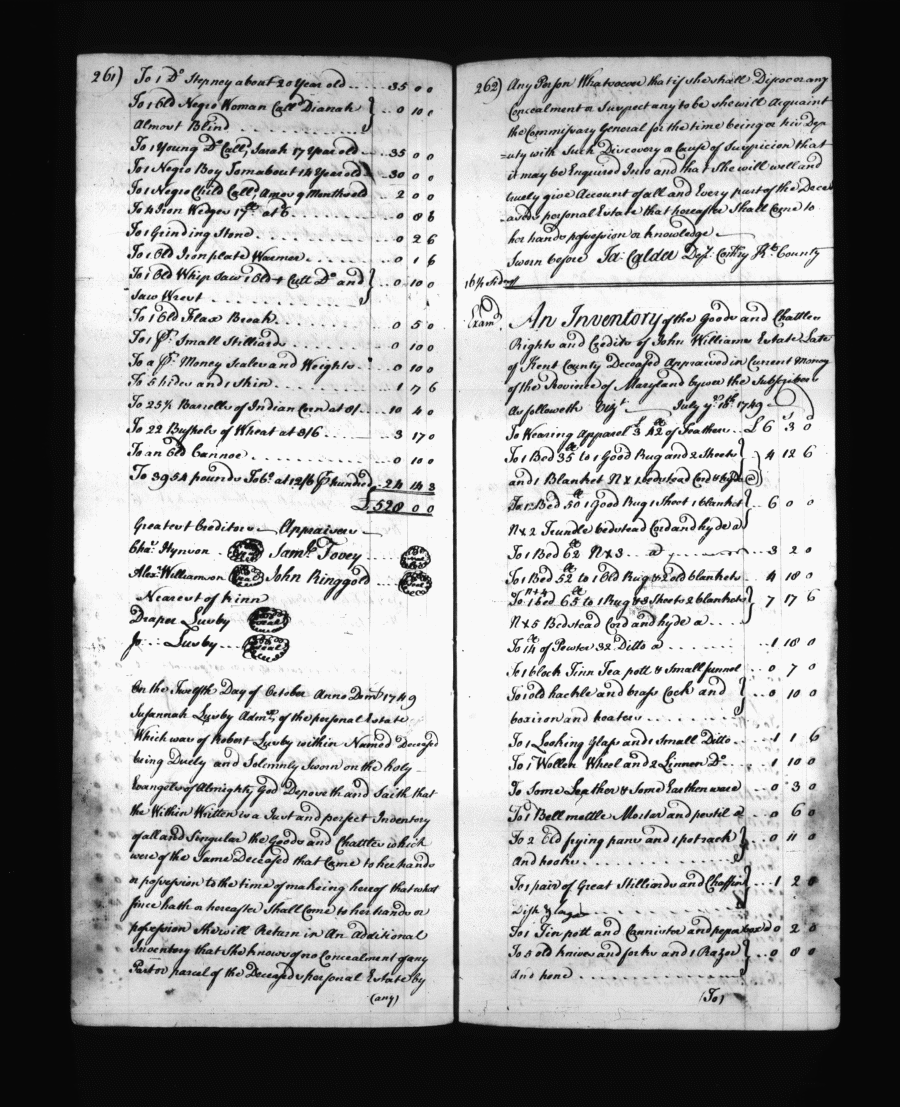 261)
To 1 Do Stepney about 20 Year old . . . . 35 0 0
To 1 Old Negro Woman Calld Dianah
Almost Blind . . . . . . . 0 10 0
To 1 Young Do Calld Sarah 17 Year old . . . 35 0 0
To 1 Negro Boy Tom about 14 Year old . . 30 0 0
To 1 Negro Child Calld Amos 9 Months old . . . 2 0 0
To 4 Iron Wedges 17lb at 6 . . . 0 8 6
To 1 Grinding Stone . . . . . . 0 2 6
To 1 Old Iron plate Warmer . . . . 0 1 6
To 1 Old Whip Saw 1 Old + Cutt Do and
Saw Wrest . . . . . . 0 10 0
To 1 Old Flax Break . . . . . . 0 5 0
To 1 pr Small Stilliards . . . . . . 0 10 0
To a pr Money Scales and Weights . . 0 10 0
To 5 hides and 1 Skin . . . . . . 1 7 6
To 25½ Barrells of Indian Corn at 8/ . . . 10 4 0
To 22 Bushels of Wheat at 3/6 . . . 3 17 0
To an Old Cannoe . . . . . . 0 10 0
To 3954 pounds Tobo at 12/6 pr hundred . . 24 14 3
£528 0 0
Greatest Creditors Appraisers
Chas Hynson Saml Tovey
Alexr Williamson John Ringgold
Nearest of kinn
Draper Lusby
Jo Lusby
On the Twelfth Day of October Anno Domi 1749
Susannah Lusby Admx of the personal Estate
Which was of Robert Lusby within Named Deceased
being Duely and Solemnly Sworn on the holy
Evangels of Almighty God Deposeth and Saith that
the Within Written is a Just and perfect Inventory
of all and Singular the Goods and Chattles which
were of the Same Deceased that Came to her hands
or possession to the time of makeing hereof that what
Since hath or hereafter Shall Come to her hands or
possession She will Return in An Additional
Inventory that She knows of no Concealment of any
Part or parcel of the Deceaseds personal Estate by
(any)
262) Any Person Whatsoever that if she shall Discover any
Concealment or Suspect any to be she will Acquaint
the Commissary General for the time being or his Dep
=uty with Such Discovery or Cause of Suspicion that
it may be Enquired Into and that She will well and
truely give Account of all and Every part of the Dece
aseds personal Estate that hereafter Shall Come to
her hands possession or knowledge
Sworn before Ja: Calder Depy Comry Kt County
16½ Sides
Examd
An Inventory of the Goods and Chattles
Rights and Credits of John Williams Estate Late
of Kent County Deceased Appraised in Current Money
of the Province of Maryland by wee the Subscribers
As followeth Vizt July ye 18th 1749
To Wearing Apparel & 42lb of Feathers . . £6 3 0
To 1 Bed 35lb to 1 Good Rug and 2 Sheets
and 1 Blanket No 1 bedstead Cord & hyde 4 12 6
To 1 Bed 50lb 1 Good Rug 1 Sheet 1 blanket
No 2 Trundle bedstead Cord and hyde a 6 0 0
To 1 Bed 62lb No 3 . . a . . . 3 2 0
To 1 Bed 52lb to 1 Old Rug & 2 old blankets . . 4 18 0
No 4
To 1 bed 65lb to 1 Rug & 3 Sheets 2 blankets
No 5 Bedstead Cord and hyde a . . . 7 17 6
To 14lb of Pewter 32 Ditto a . . . 1 18 0
To 1 block Tinn Tea pott & Small funnel . . 0 7 0
To 1 old hackle and brass Cock and
box iron and heaters . . . . . 0 10 0
To 1 Looking Glass and 1 Small Ditto . . 1 1 6
To 1 Wollen Wheel and 2 Linnen Do . . 1 10 0
To Some Leather & Some Earthenware 0 3 0
To 1 Bell mettle Mortar and pestil a . . 0 6 0
To 2 Old frying pans and 1 potrack
And hooks . . . . . . 0 11 0
To 1 pair of Great Stilliards and Chaffing
Dish . . . . . 1 2 0
To 1 Tin pott and Cannister and pepar box 0 2 0
To 5 old knives and forks and 1 Razor
And hone . . . . . . 0 8 0
(To)